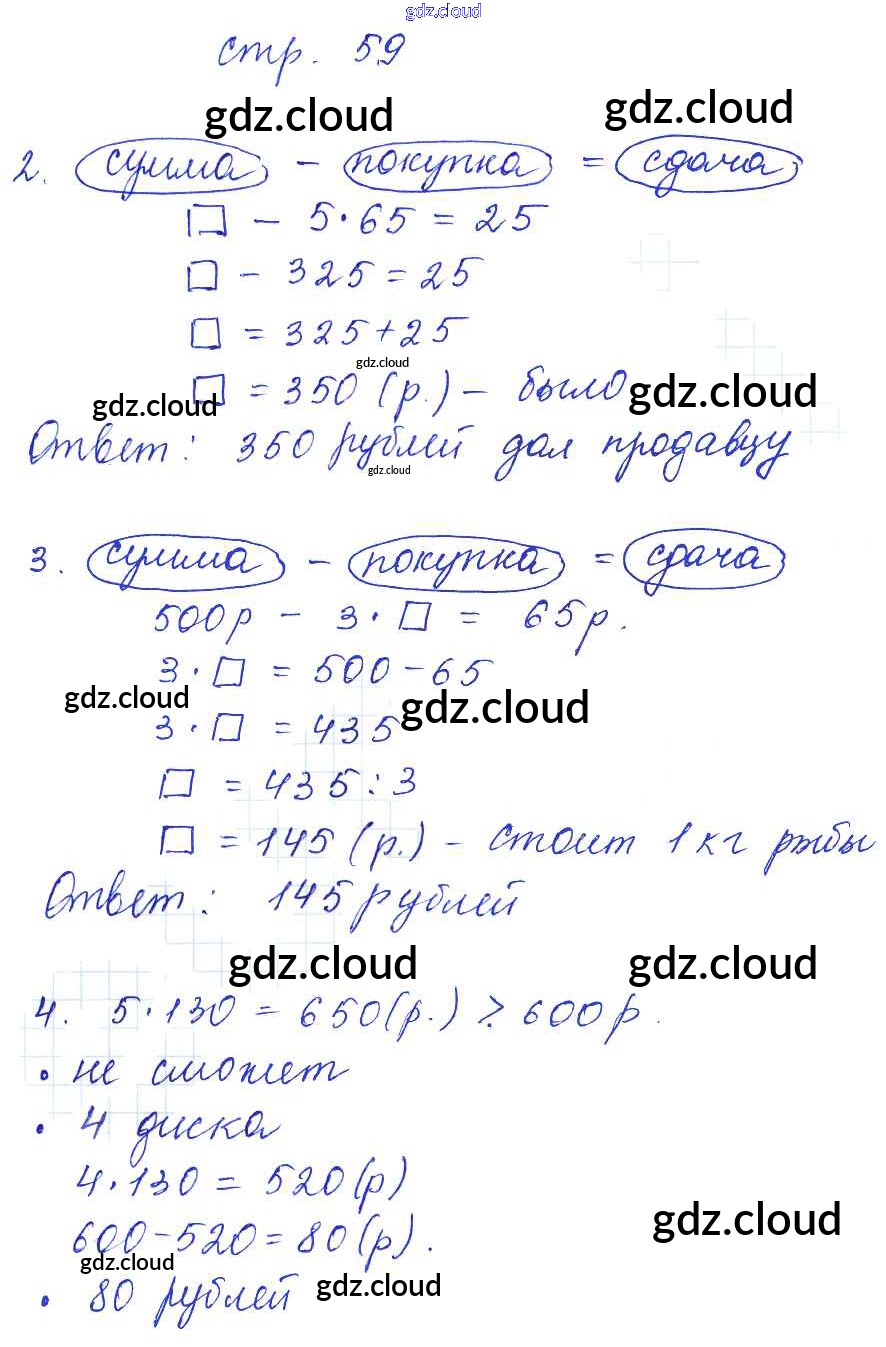 gdz.cloud
стр. 59
gdz.cloud gdz.cloud
2. сумма - покупка = сдача
□ - 5·65 = 25
□ - 325 = 25
□ = 325+25
gdz.cloud
□ = 350 (р.) - было
gdz.cloud gdz.cloud
Ответ: 350 рублей дал продавцу
gdz.cloud
3. сумма - покупка = сдача
500р - 3·□ = 65р.
3·□ = 500-65
gdz.cloud gdz.cloud
3·□ = 435
□ = 435:3
□ = 145 (р.) - стоит 1 кг рыбы
Ответ: 145 рублей
gdz.cloud gdz.cloud
4. 5·130 = 650(р.) > 600р.
• не сможет
• 4 диска
4·130 = 520(р)
gdz.cloud
600-520=80(р).
gdz.cloud gdz.cloud
• 80 рублей